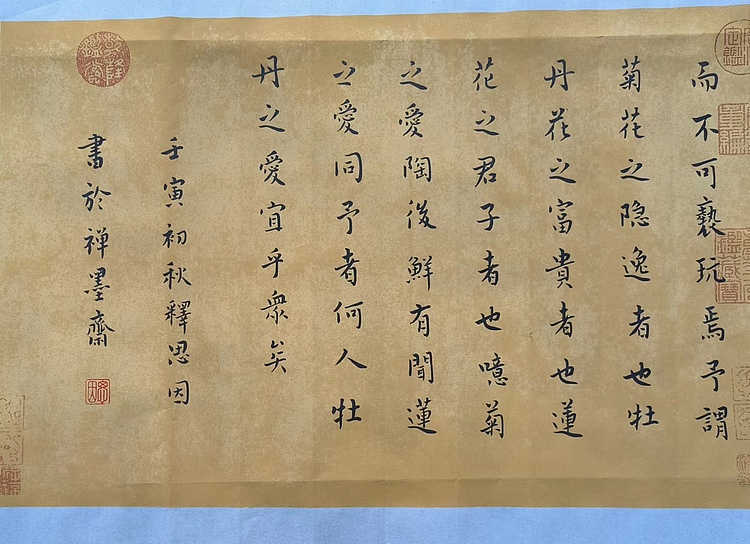 而不可褻玩焉予謂
菊花之隐逸者也牡
丹花之富貴者也蓮
花之君子者也噫菊
之愛陶後鮮有聞蓮
之愛同予者何人牡
丹之愛宜乎衆矣
壬寅初秋釋思因
書於禅墨齋